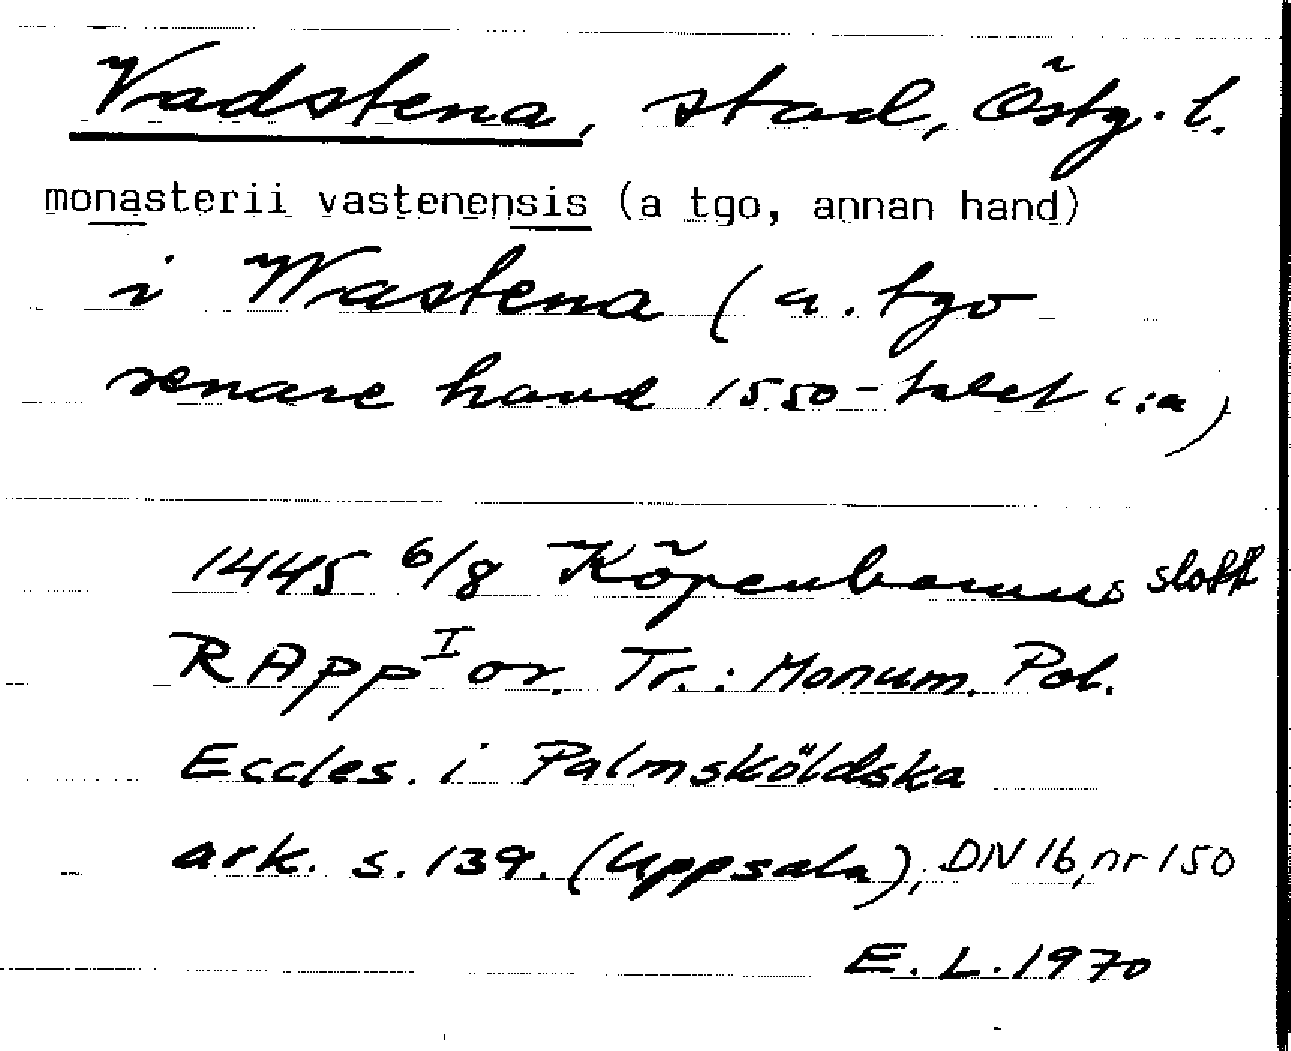 Vadstena, stad, Östg. l.
monasterii vastenensis (a tgo, annan hand)
i Wastena (a. tgo
senare hand 1550-talet c:a)
1445 6/8 Köpenhamns slott
RApp I or. Tr.: Monum. Pol.
Eccles. i Palmsköldska
ark. s. 139. (Uppsala), DN 16, nr 150
E. L. 1970